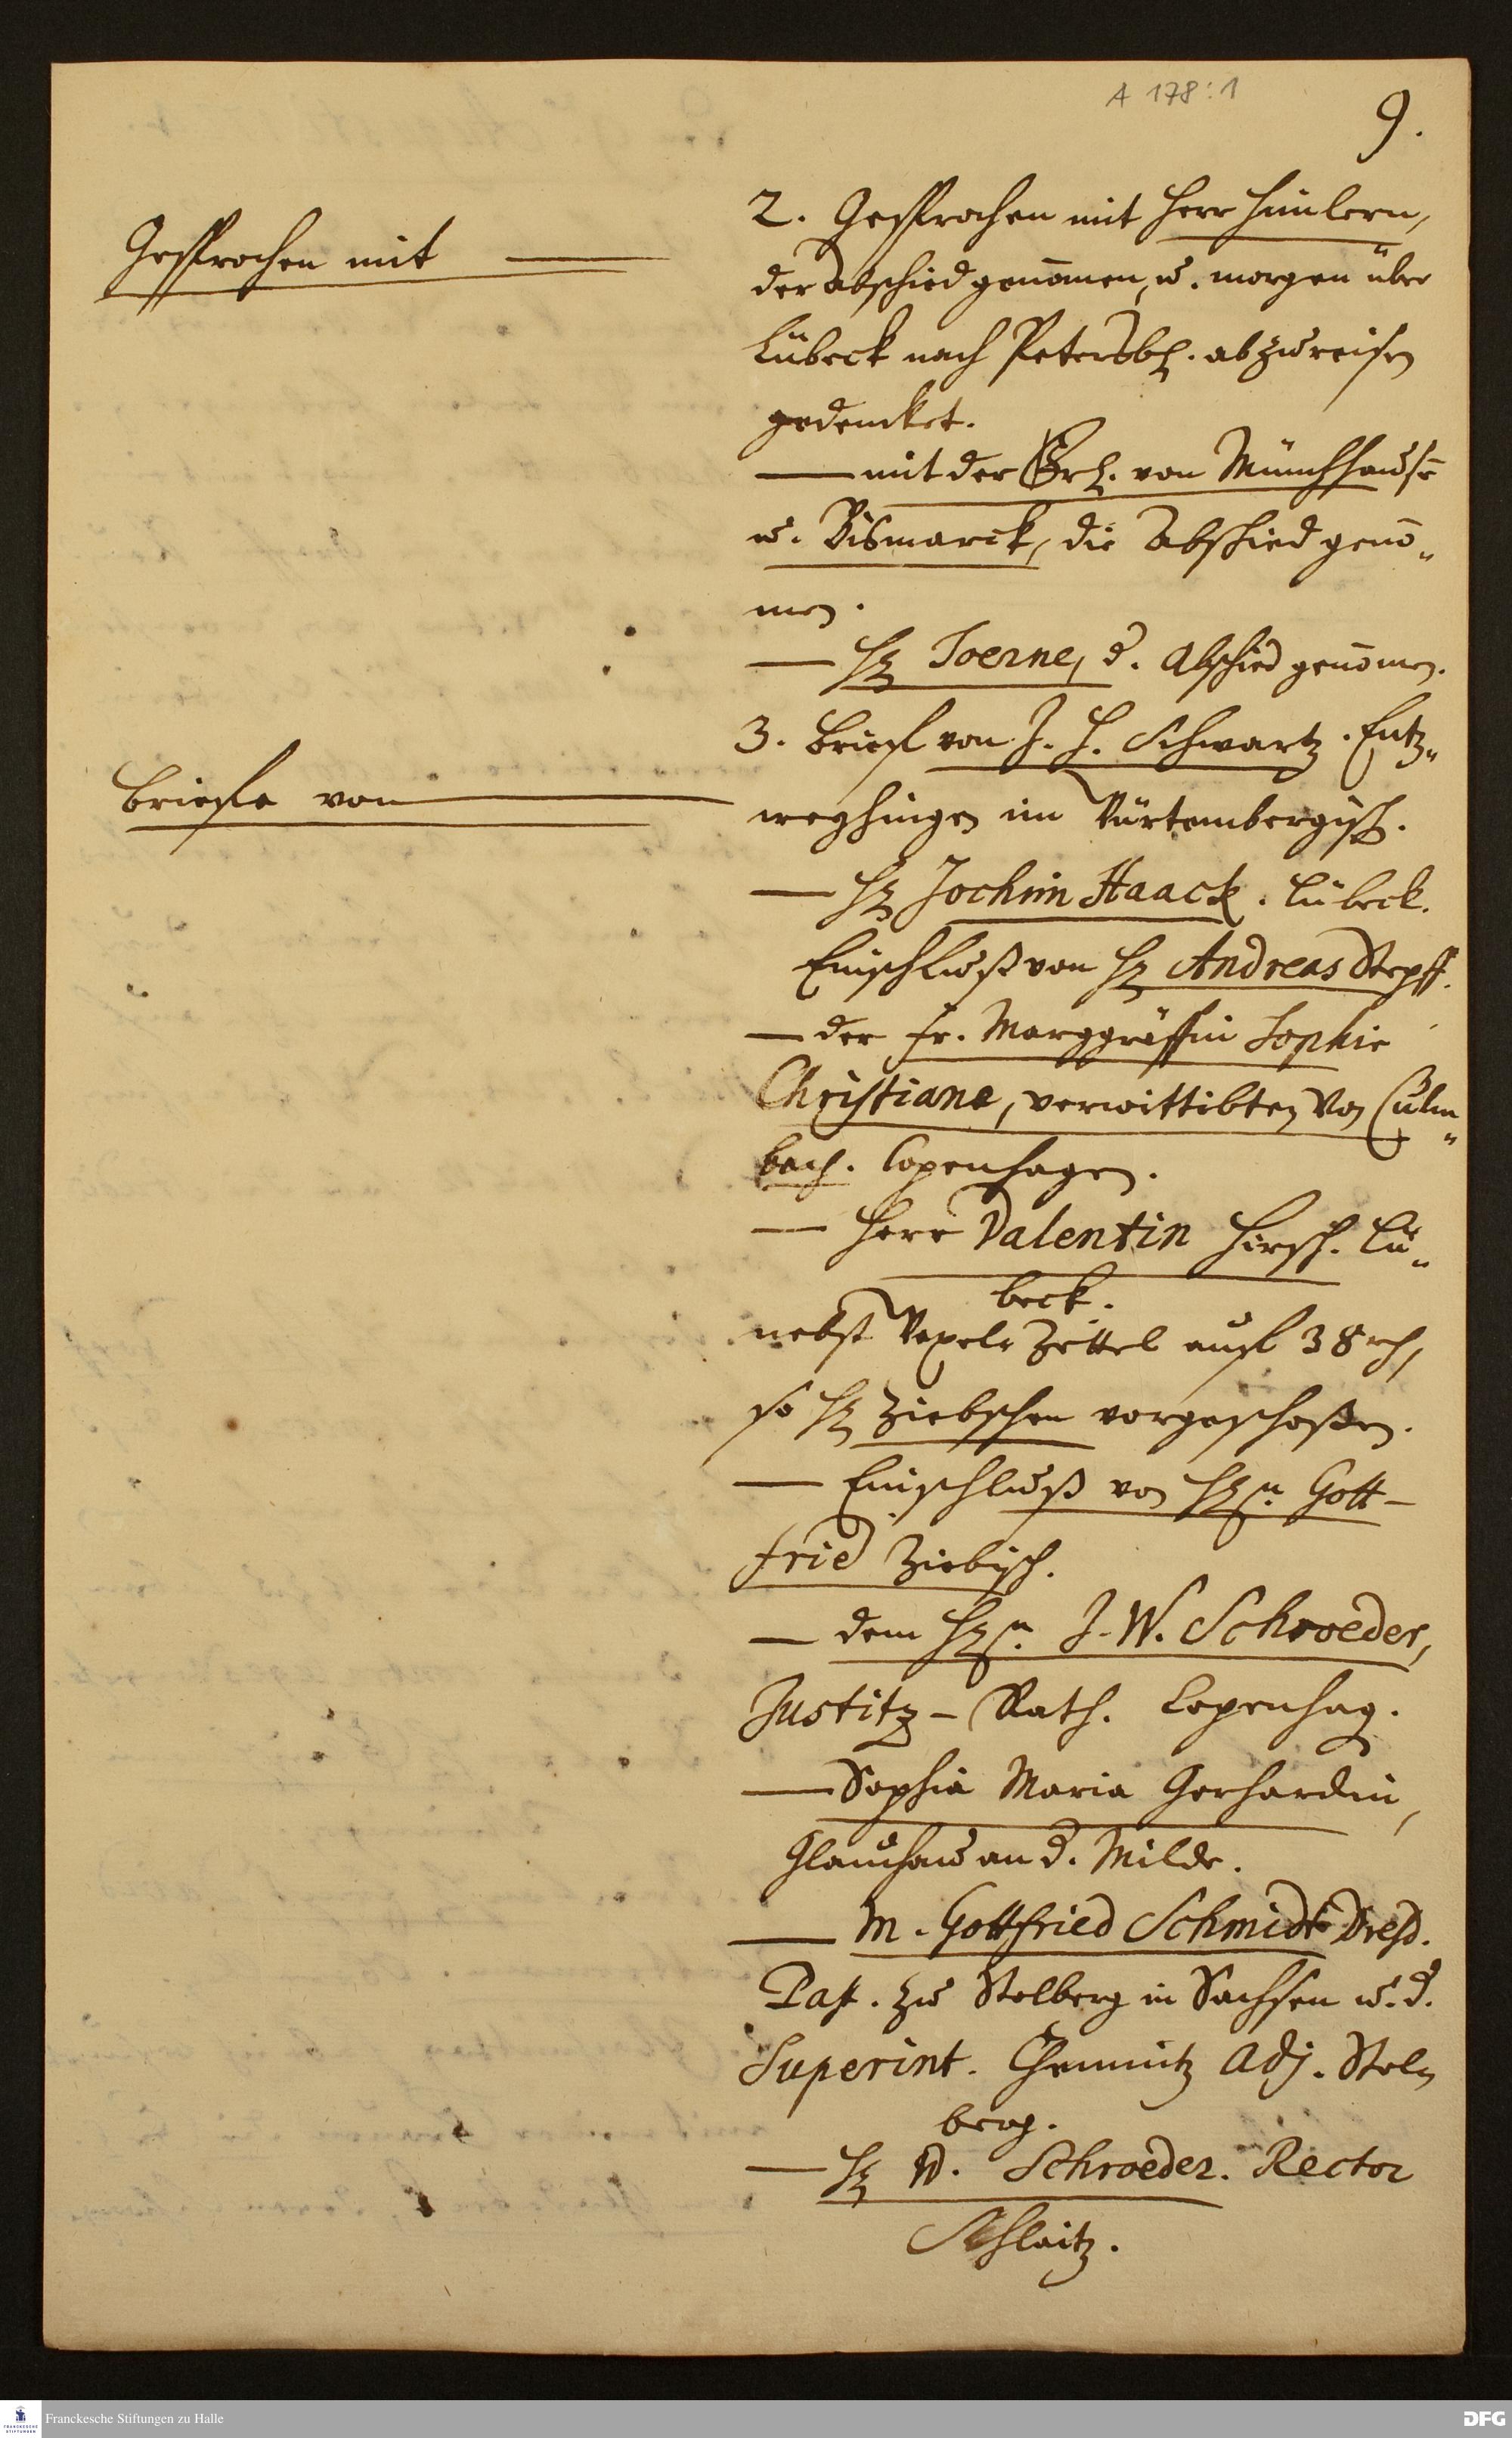 A 178:1
9.
Gesprochen mit
2. Gesprochen mit Herr
der Abschied genom̄en, u. morgen über
Lübeck nach Petersb. abzureisen
gedencket.
— mit der von Münchhausē
u. Bismarck, die Abschied genō-
men.
— H. Joerne, d. Abschied genom̄en.
Briefe von
3. Brief von J. H. Schwartz. Entz-
weyhingen im Würtembergisch.
— H. Jochim Haack. Lübeck.
Einschluß von H. Andreas Stepff.
— der Fr. Marggräffin Sophie
Christiane, verwittibten von Culm-
bach. Copenhagen.
— Herr Valentin Hirsch. Lü-
beck.
nebst Wexel Zettel auf 38 rh,
so H. Ziebschen vorgeschoßen.
— Einschluß von H.n Gott-
fried Ziebisch.
— dem H.n J. W. Schroeder,
Justitz-Rath. Copenhag.
— Sophia Maria Gerhardin,
Glauchau an d. Milde.
— M. Gottfried Schmidt Dresd.
Past. zu Stolberg in Sachsen u. d.
Superint. Chemnitz Adj. Stol-
berg.
— H. W. Schroeder. Rector
Schlaitz.
Franckesche Stiftungen zu Halle
DFG